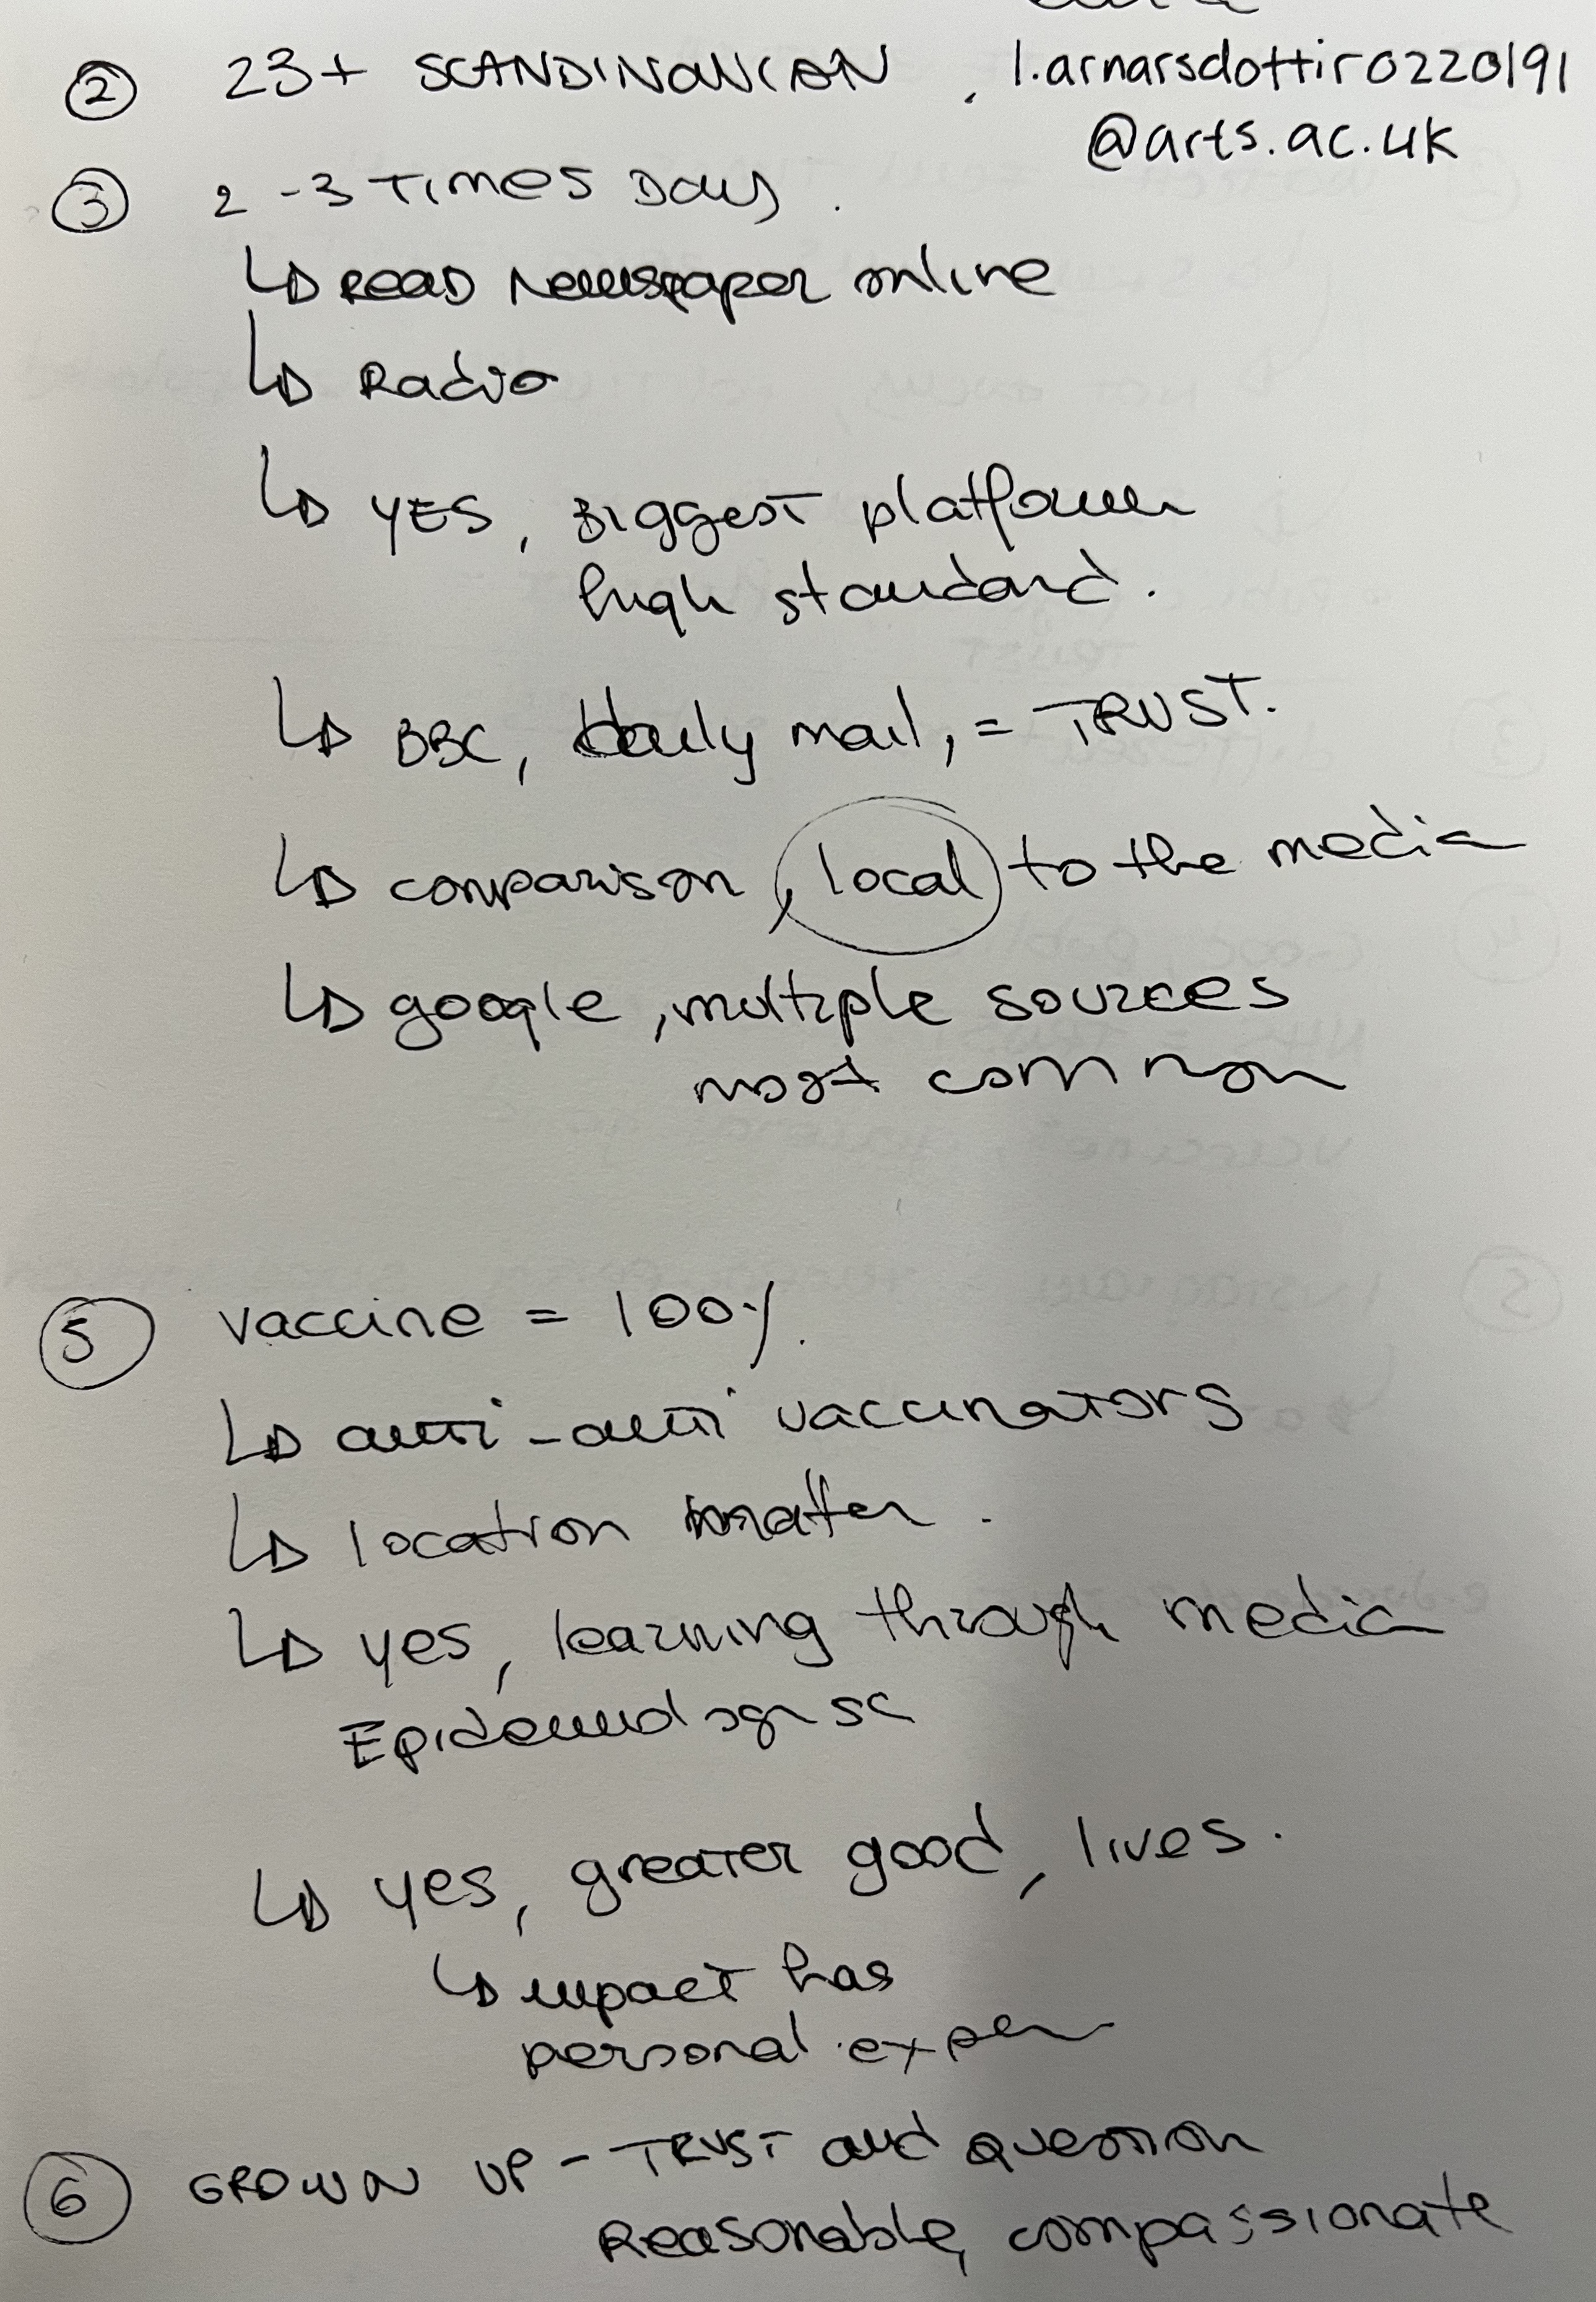 ② 23+ SCANDINAVIAN , l.arnarsdottir0220191
@arts.ac.uk
③ 2-3 TIMES DAY.
↳ READ Newspaper online
↳ Radio
↳ YES, BIGGEST platform
high standard.
↳ BBC, daily mail, = TRUST.
↳ comparison, local to the media
↳ google, multiple sources
most common
⑤ vaccine = 100%
↳ anti-anti vaccinators
↳ location matter.
↳ yes, learning through media
↳ yes, greater good, lives.
↳ impact has
personal exper
⑥ GROWN UP - TRUST and QUESTION
Reasonable, compassionate